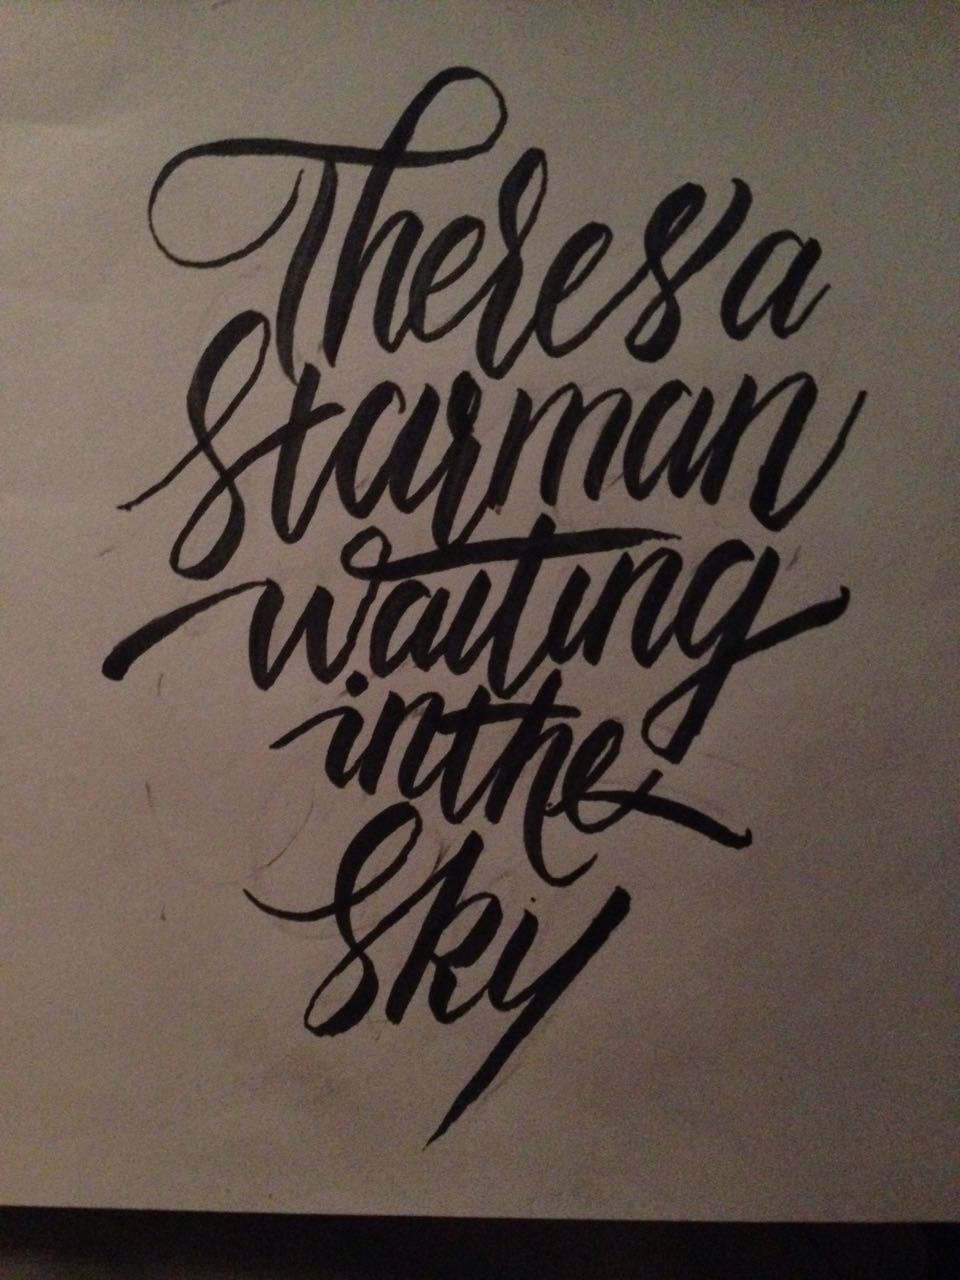 Theres a
Starman
waiting
in the
Sky